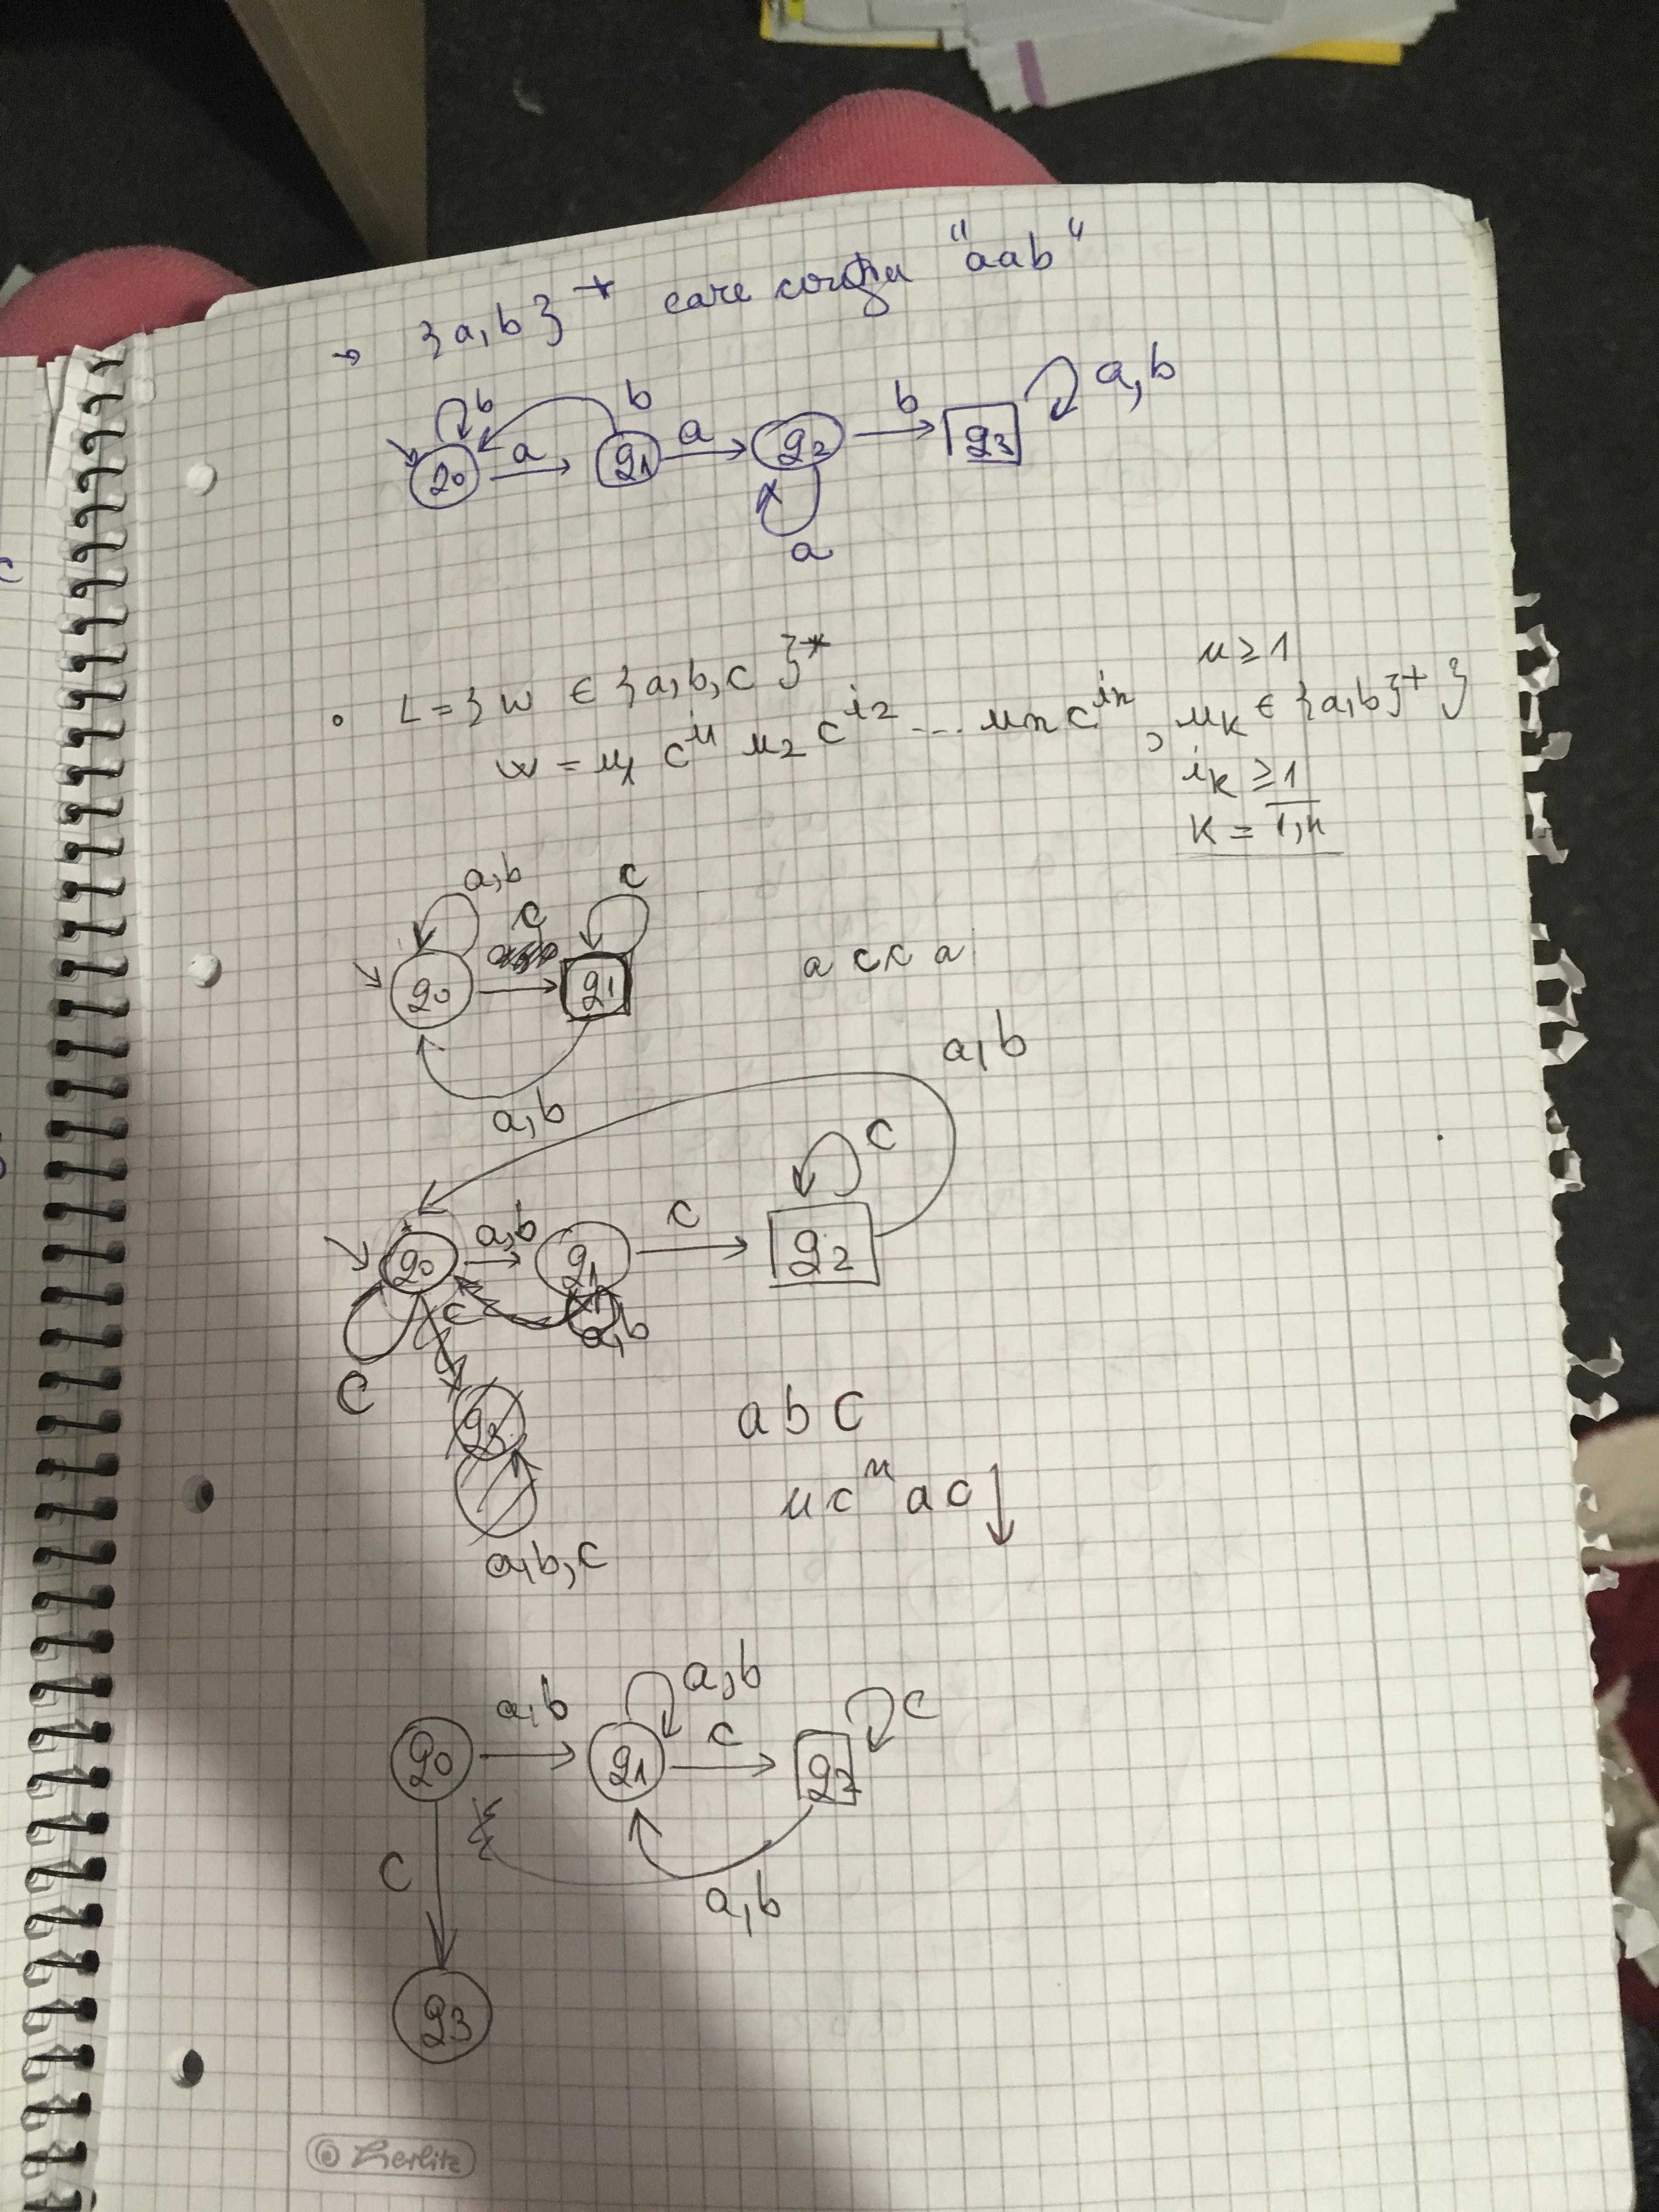 → {a,b}* care conțin "aab"
b b a,b
q0 a q1 a q2 b q3
a
• L = { w ∈ {a,b,c}* n ≥ 1
w = u1 c^i1 u2 c^i2 ... un c^in , uk ∈ {a,b}+ }
ik ≥ 1
k = 1,n
a,b c c
q0 q1 a c c a
a,b a,b
c
q0 a,b q1 c q2
c a,b
c
q3 a b c
u c^n a c ↓
a,b,c
a,b a,b c
q0 q1 c q2
c a,b
q3
© Herlitz